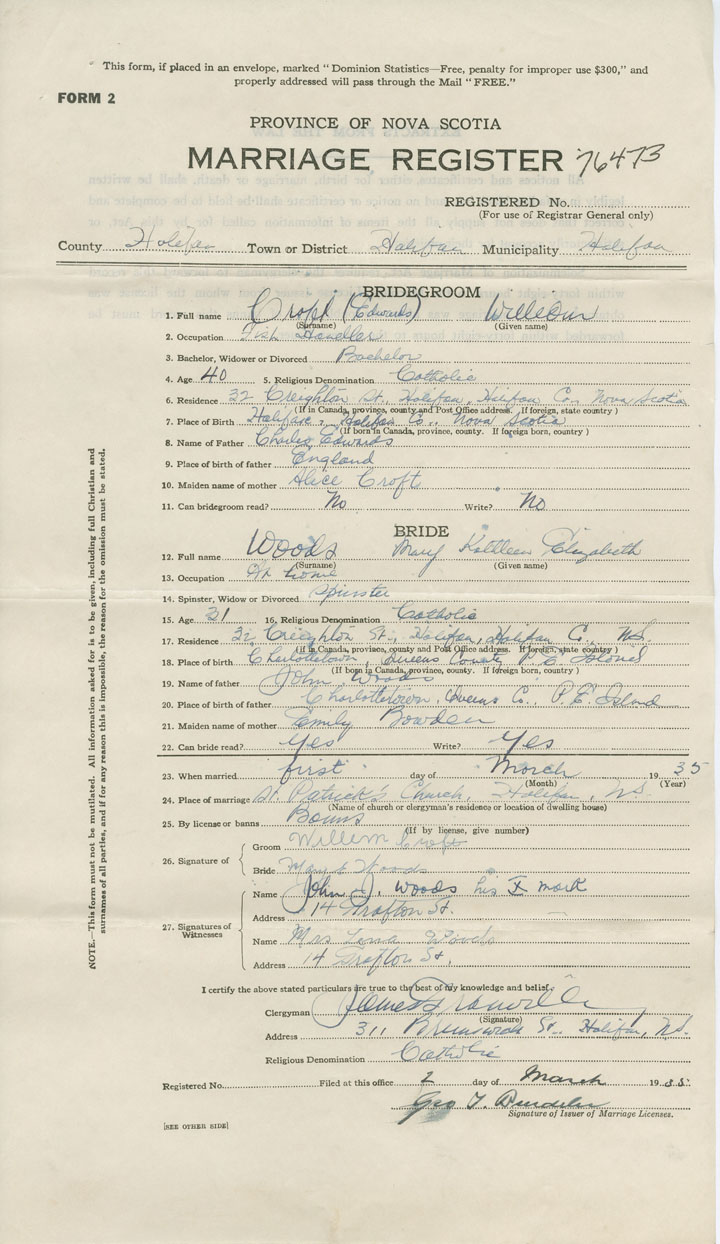 This form, if placed in an envelope, marked "Dominion Statistics—Free, penalty for improper use $300," and
properly addressed will pass through the Mail "FREE."
FORM 2
PROVINCE OF NOVA SCOTIA
MARRIAGE REGISTER 76473
REGISTERED No.
(For use of Registrar General only)
County Halifax Town or District Halifax Municipality Halifax
BRIDEGROOM
1. Full name Croft (Edwards) William
(Surname) (Given name)
2. Occupation Fish Handler
3. Bachelor, Widower or Divorced Bachelor
4. Age 40 5. Religious Denomination Catholic
6. Residence 32 Creighton St., Halifax, Halifax Co., Nova Scotia
(If in Canada, province, county and Post Office address. If foreign, state country)
7. Place of Birth Halifax, Halifax Co., Nova Scotia
(If born in Canada, province, county. If foreign born, country)
8. Name of Father Charles Edwards
9. Place of birth of father England
10. Maiden name of mother Alice Croft
11. Can bridegroom read? No Write? No
BRIDE
12. Full name Woods Mary Kathleen Elizabeth
(Surname) (Given name)
13. Occupation At home
14. Spinster, Widow or Divorced Spinster
15. Age 21 16. Religious Denomination Catholic
17. Residence 32 Creighton St., Halifax, Halifax Co., N.S.
(If in Canada, province, county and Post Office address. If foreign, state country)
18. Place of birth Charlottetown, Queens County P.E. Island
(If born in Canada, province, county. If foreign born, country)
19. Name of father John Woods
20. Place of birth of father Charlottetown, Queens Co., P.E. Island
21. Maiden name of mother Emily Bowden
22. Can bride read? Yes Write? Yes
23. When married first day of March 1935
(Month) (Year)
24. Place of marriage St. Patrick's Church, Halifax, N.S.
(Name of church or clergyman's residence or location of dwelling house)
25. By license or banns Banns
(If by license, give number)
26. Signature of
Groom Willem Croft
Bride Mary E Woods
27. Signatures of Witnesses
Name John J. Woods his X mark
Address 14 Grafton St.
Name Mrs Woods
Address 14 Grafton St.
I certify the above stated particulars are true to the best of my knowledge and belief.
Clergyman James
(Signature)
Address 311 Brunswick St., Halifax, N.S.
Religious Denomination Catholic
Registered No. Filed at this office 2 day of March 1935.
Geo T.
Signature of Issuer of Marriage Licenses.
[SEE OTHER SIDE]
NOTE.—This form must not be mutilated. All information asked for is to be given, including full Christian and
surnames of all parties, and if for any reason this is impossible, the reason for the omission must be stated.